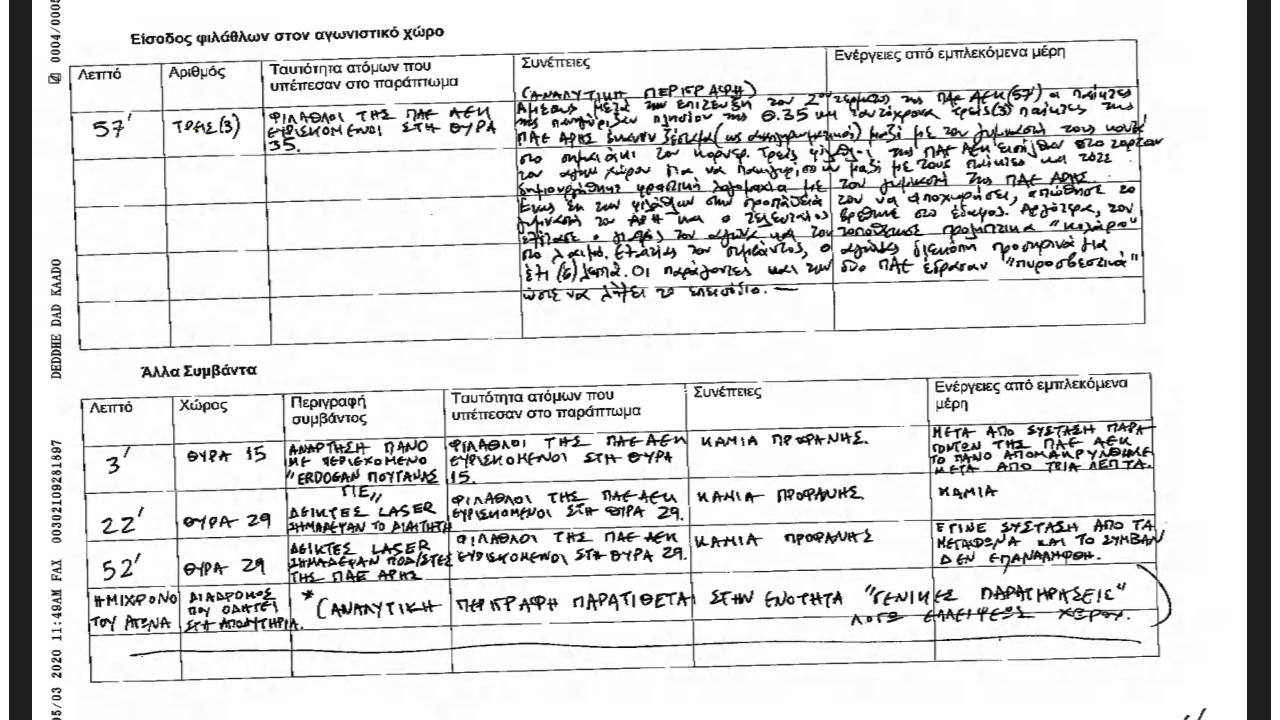 0004/0005
Είσοδος φιλάθλων στον αγωνιστικό χώρο
Λεπτό
Αριθμός
Ταυτότητα ατόμων που
υπέπεσαν στο παράπτωμα
Συνέπειες
Ενέργειες από εμπλεκόμενα μέρη
57'
ΤΡΕΙΣ (3)
ΦΙΛΑΘΛΟΙ ΤΗΣ ΠΑΕ ΑΕΚ
ΕΥΡΙΣΚΟΜΕΝΟΙ ΣΤΗ ΘΥΡΑ
35.
(ΑΝΑΛΥΤΙΚΗ ΠΕΡΙΓΡΑΦΗ)
Αμέσως μετά την επίτευξη του 2ου τέρματος της ΠΑΕ ΑΕΚ (57') οι παίκτες
της πανηγύριζαν πλησίον της Θ.35 και ταυτόχρονα τρείς (3) παίκτες της
ΠΑΕ ΑΡΗΣ έκαναν ζέσταμα (ως αναπληρωματικοί) μαζί με τον γυμναστή τους κοντά
στο σημαιάκι του κόρνερ. Τρείς φίλαθλοι της ΠΑΕ ΑΕΚ εισήλθαν στο χορτάρι
του αγων. χώρου για να πανηγυρίσουν μαζί με τους παίκτες και τότε
δημιουργήθηκε φραστική λογομαχία με τον γυμναστή της ΠΑΕ ΑΡΗΣ.
Ένας εκ των φιλάθλων στην προσπάθεια του να αποχωρήσει, απώθησε το
γυμναστή του ΑΡΗ και ο τελευταίος βρέθηκε στο έδαφος. Αργότερα, τον
εξέτασε ο γιατρός του αγώνα και του τοποθέτησε προληπτικά "κολάρο"
στο λαιμό. Εξαιτίας του συμβάντος, ο αγώνας διεκόπη προσωρινά για
έξι (6) λεπτά. Οι παράγοντες και των δύο ΠΑΕ έδρασαν "πυροσβεστικά"
ώστε να λήξει το επεισόδιο.
Άλλα Συμβάντα
Λεπτό
Χώρος
Περιγραφή
συμβάντος
Ταυτότητα ατόμων που
υπέπεσαν στο παράπτωμα
Συνέπειες
Ενέργειες από εμπλεκόμενα
μέρη
3'
ΘΥΡΑ 15
ΑΝΑΡΤΗΣΗ ΠΑΝΟ
ΜΕ ΠΕΡΙΕΧΟΜΕΝΟ
"ERDOGAN ΠΟΥΤΑΝΑΣ
ΓΙΕ"
ΦΙΛΑΘΛΟΙ ΤΗΣ ΠΑΕ ΑΕΚ
ΕΥΡΙΣΚΟΜΕΝΟΙ ΣΤΗ ΘΥΡΑ
15.
ΚΑΜΙΑ ΠΡΟΦΑΝΗΣ.
ΜΕΤΑ ΑΠΟ ΣΥΣΤΑΣΗ ΠΑΡΑ
ΓΟΝΤΩΝ ΤΗΣ ΠΑΕ ΑΕΚ
ΤΟ ΠΑΝΟ ΑΠΟΜΑΚΡΥΝΘΗΚΕ
ΜΕΤΑ ΑΠΟ ΤΡΙΑ ΛΕΠΤΑ.
22'
ΘΥΡΑ 29
ΔΕΙΚΤΕΣ LASER
ΣΗΜΑΔΕΨΑΝ ΤΟ ΔΙΑΙΤΗΤΗ
ΦΙΛΑΘΛΟΙ ΤΗΣ ΠΑΕ ΑΕΚ
ΕΥΡΙΣΚΟΜΕΝΟΙ ΣΤΗ ΘΥΡΑ 29.
ΚΑΜΙΑ ΠΡΟΦΑΝΗΣ.
ΚΑΜΙΑ
52'
ΘΥΡΑ 29
ΔΕΙΚΤΕΣ LASER
ΣΗΜΑΔΕΨΑΝ ΠΟΔ/ΣΤΕΣ
ΤΗΣ ΠΑΕ ΑΡΗΣ
ΦΙΛΑΘΛΟΙ ΤΗΣ ΠΑΕ ΑΕΚ
ΕΥΡΙΣΚΟΜΕΝΟΙ ΣΤΗ ΘΥΡΑ 29.
ΚΑΜΙΑ ΠΡΟΦΑΝΗΣ
ΕΓΙΝΕ ΣΥΣΤΑΣΗ ΑΠΟ ΤΑ
ΜΕΓΑΦΩΝΑ ΚΑΙ ΤΟ ΣΥΜΒΑΝ
ΔΕΝ ΕΠΑΝΑΛΗΦΘΗ.
ΗΜΙΧΡΟΝΟ
ΤΟΥ ΑΓΩΝΑ
ΔΙΑΔΡΟΜΟΣ
ΠΟΥ ΟΔΗΓΕΙ
ΣΤΑ ΑΠΟΔΥΤΗΡΙΑ.
* (ΑΝΑΛΥΤΙΚΗ ΠΕΡΙΓΡΑΦΗ ΠΑΡΑΤΙΘΕΤΑΙ ΣΤΗΝ ΕΝΟΤΗΤΑ "ΓΕΝΙΚΕΣ ΠΑΡΑΤΗΡΗΣΕΙΣ"
ΛΟΓΩ ΕΛΛΕΙΨΕΩΣ ΧΩΡΟΥ.)
05/03 2020 11:49AM FAX 00302109281897 DEDDHE DAD KAADO